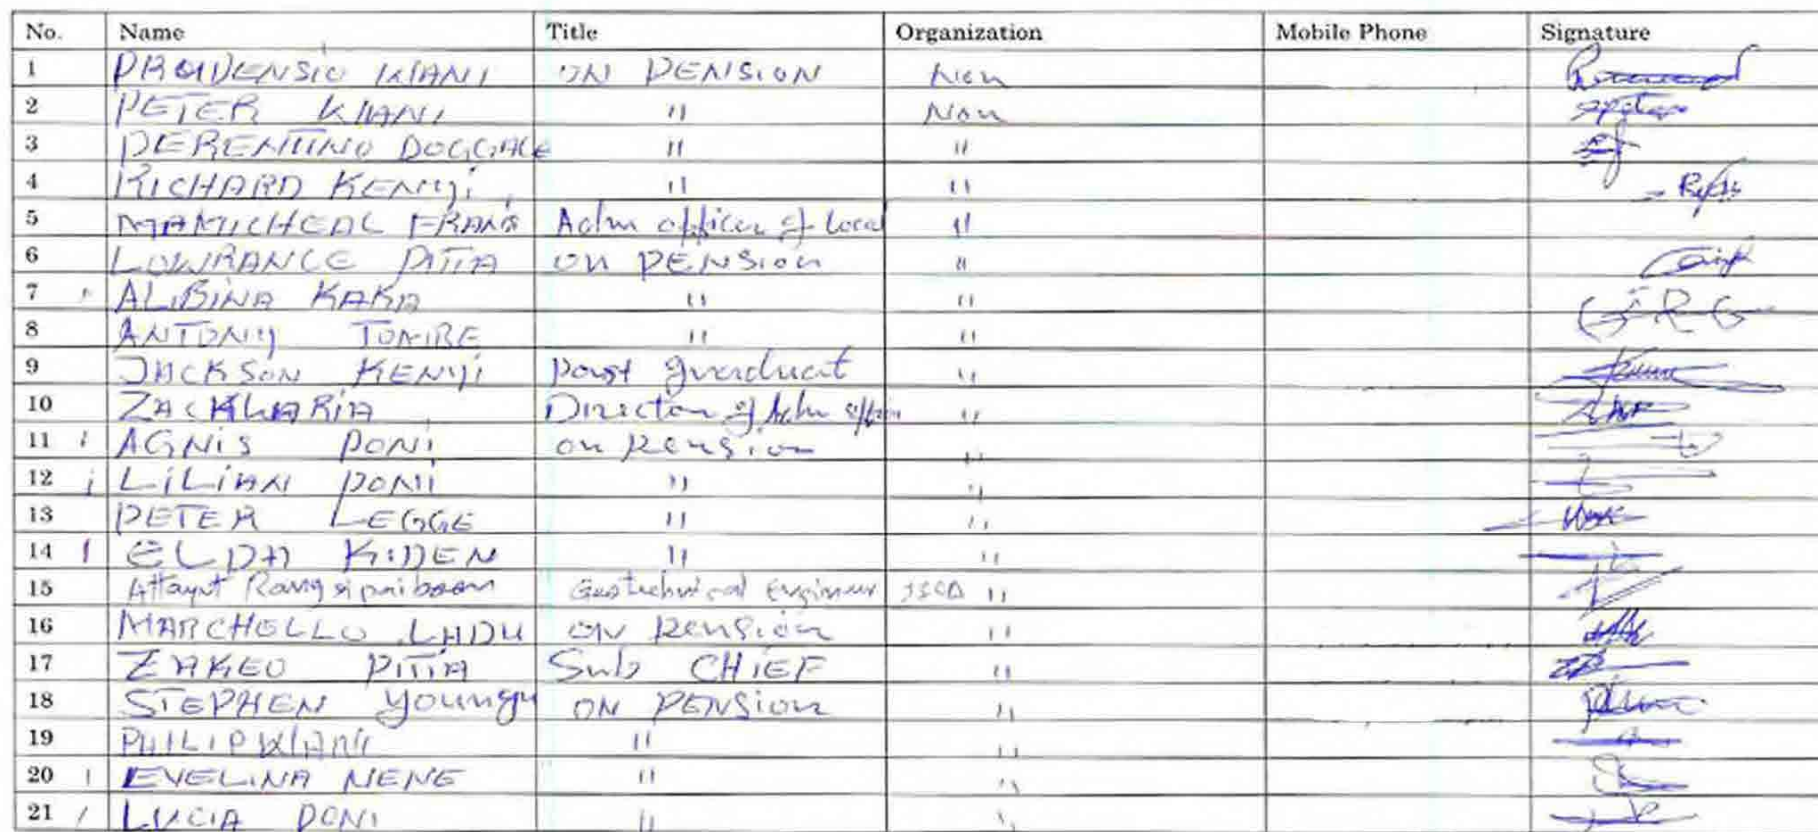 No. Name Title Organization Mobile Phone Signature
1 PROVIDENSIO KIANI ON PENSION Non
2 PETER KIANI " Non
3 DERENTINO DOGGALE " "
4 RICHARD KENYI " "
5 MAMICHEAL FRANS Adm officer of local "
6 LOWRANCE PITIA ON PENSION "
7 ALIBINA KAKA " "
8 ANTONY TOMBE " "
9 JACKSON KENYI Post graduat "
10 ZACKWARIA Director of Adm "
11 AGNIS PONI on pension "
12 LILIAN PONI " "
13 PETER LEGGE " "
14 ELDA KIDEN " "
15 Attayut Rangsipaiboon Geotechnical Engineer "
16 MARCHELLO LADU ON Pension "
17 ZAKEO PITIA Sub CHIEF "
18 STEPHEN ON PENSION "
19 PHILIP KIANI " "
20 EVELINA NENE " "
21 LUCIA PONI " "